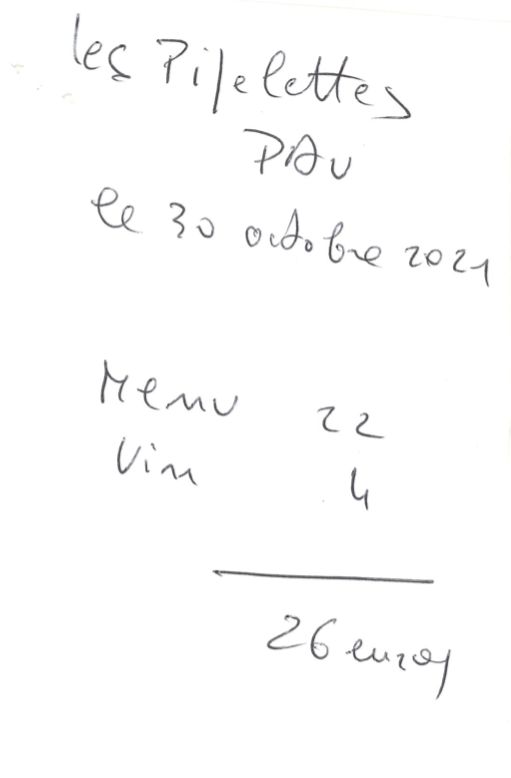 les Pipelettes
PAU
le 30 octobre 2021
Menu 22
Vin 4
26 euros